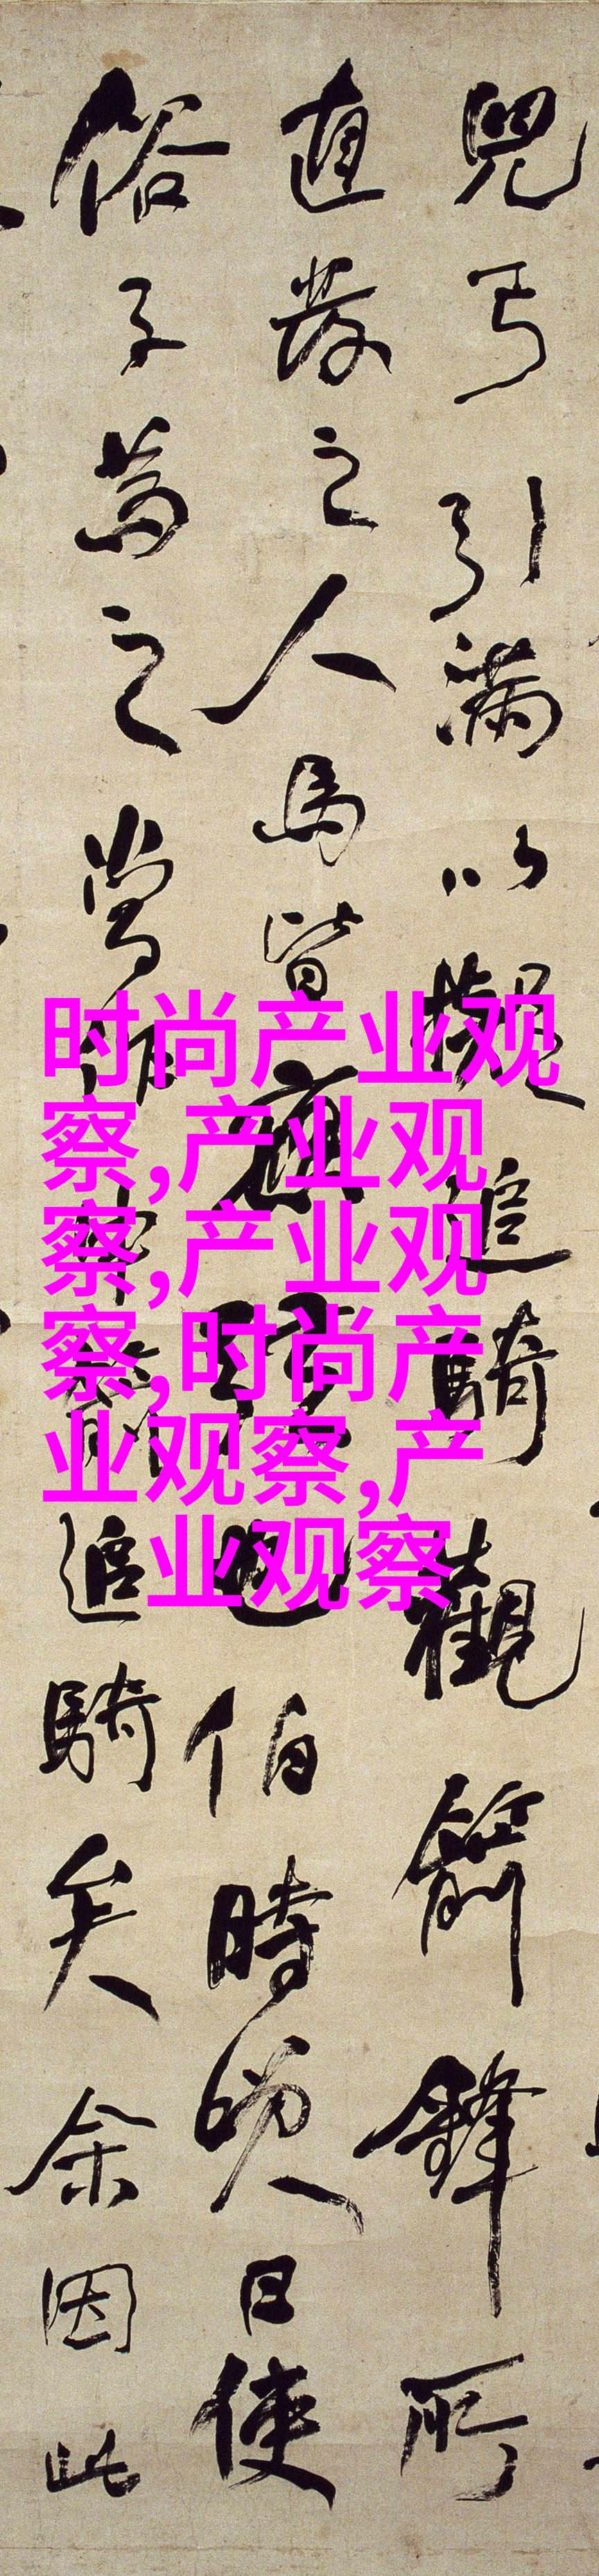 兒弓引滿以擬追騎觀箭鋒所
直發之人馬皆應弦也伯時笑曰使
俗子為之當作中箭追騎矣余因此
时尚产业观
察,产业观
察,产业观
察,时尚产
业观察,产
业观察